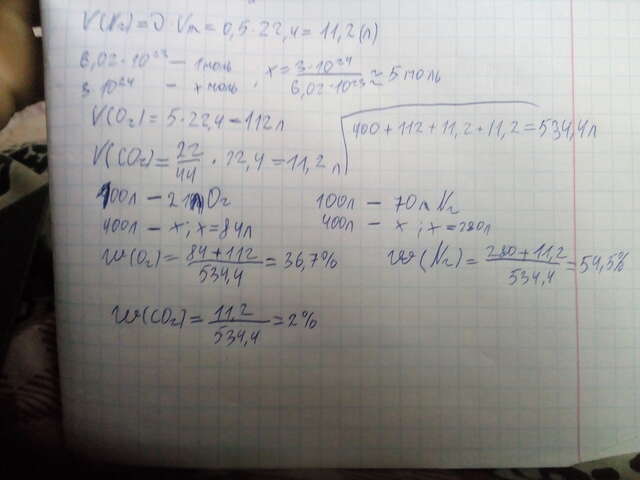 V(N₂) = ϑ · Vm = 0,5 · 22,4 = 11,2 (л)
6,02 · 10²³ — 1 моль
3 · 10²⁴ — x моль . x = 3·10²⁴ / 6,02·10²³ ≈ 5 моль
V(O₂) = 5 · 22,4 = 112 л
400 + 112 + 11,2 + 11,2 = 534,4 л
V(CO₂) = 22/44 · 22,4 = 11,2 л
100л — 21л O₂
400л — x ; x = 84л
100л — 70л N₂
400л — x ; x = 280л
W(O₂) = 84 + 112 / 534,4 = 36,7%
W(N₂) = 280 + 11,2 / 534,4 = 54,5%
W(CO₂) = 11,2 / 534,4 = 2%